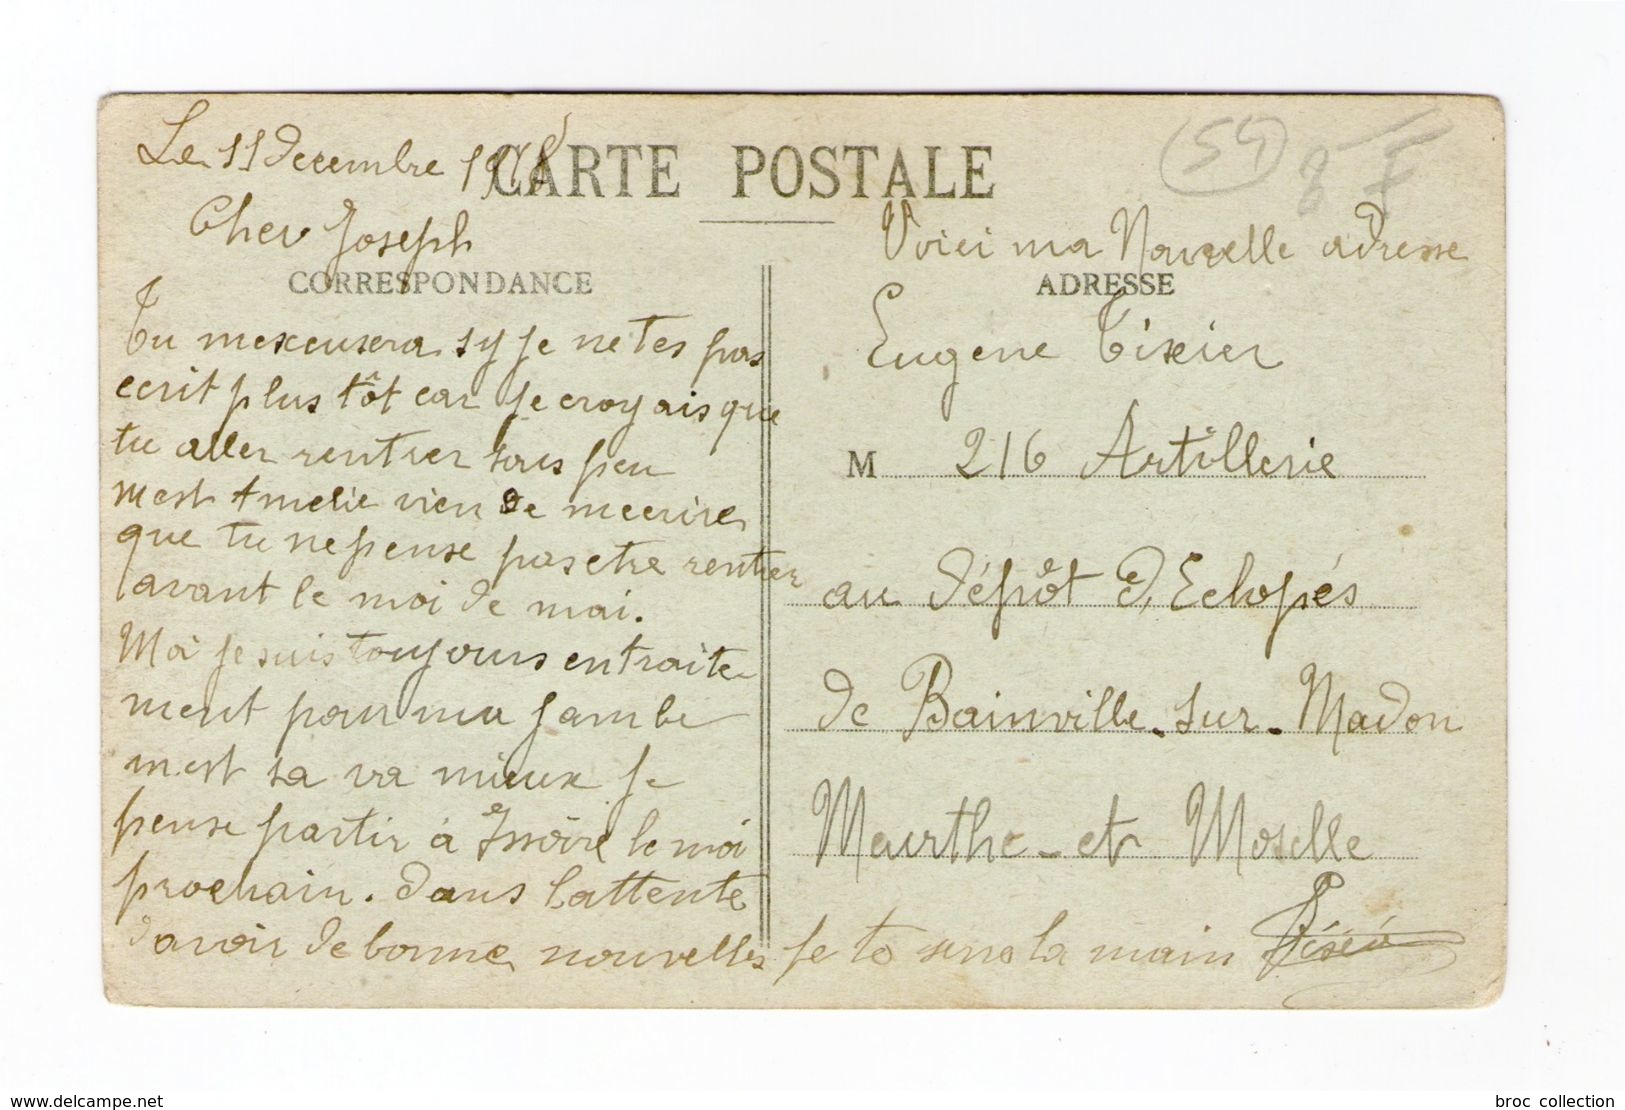 Le 11 decembre 1918
CARTE POSTALE
54
Cher Joseph
CORRESPONDANCE
Tu mexcusera sy je ne tes pas
ecrit plus tôt car je croyais que
tu aller rentrer sous peu
mest Amelie vien de mecrire
que tu ne pense pas etre rentrer
avant le moi de mai.
Moi je suis toujours en traite
ment pour ma jambe
mest sa va mieux je
pense partir à Issoire le moi
prochain. dans lattente
davoir de bonne nouvelles je te serre la main Tixier
Voici ma Nouvelle adresse
ADRESSE
Eugene Tixier
M 216 Artillerie
au dépôt d'Eclopés
de Bainville-sur-Madon
Meurthe-et Moselle
delcampe.net
broc_collection